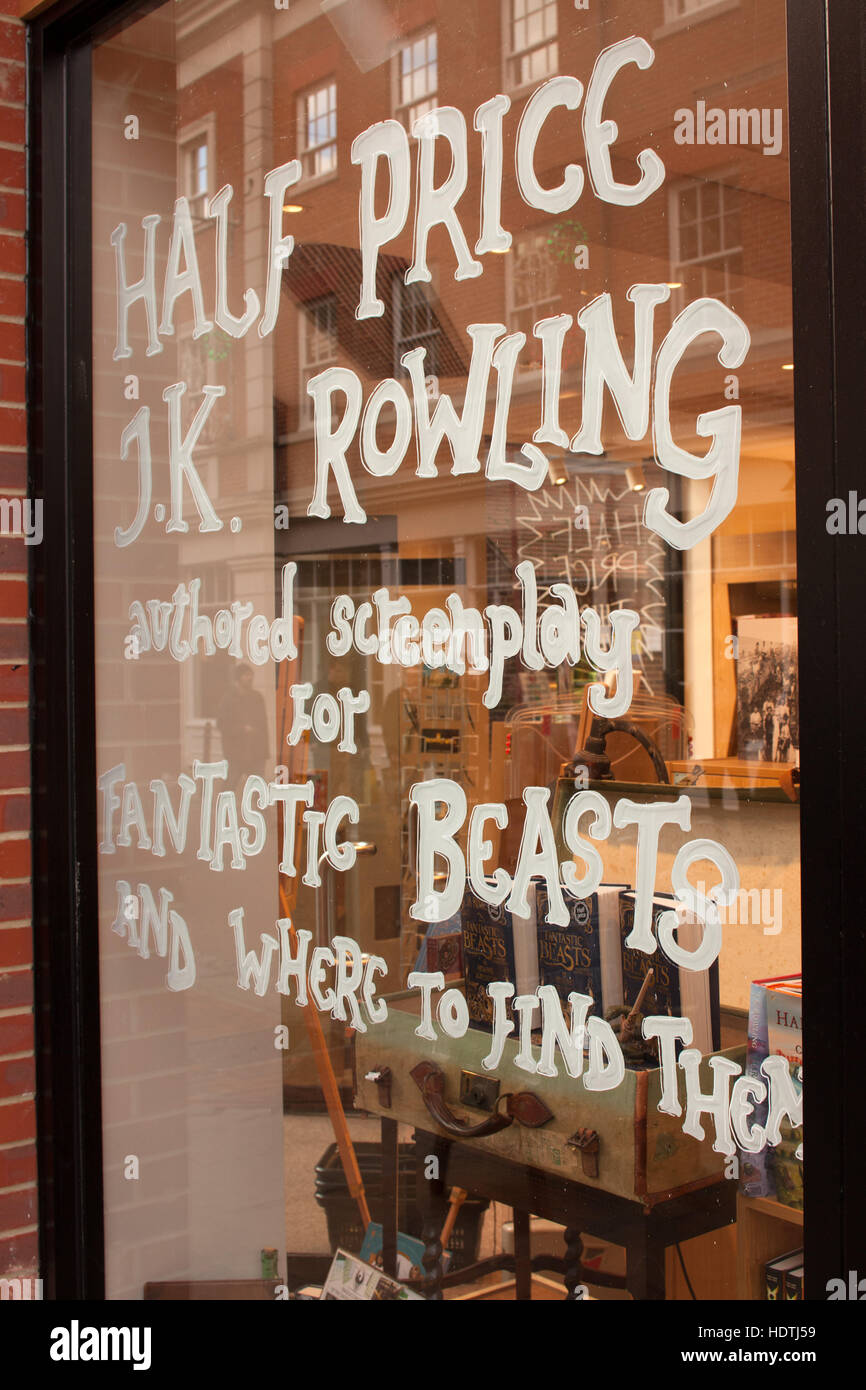 HALF PRICE
J.K. ROWLING
authored screenplay
for
FANTASTIC BEASTS
AND WHERE TO FIND THEM
HALF
PRICE
FANTASTIC
BEASTS
FANTASTIC
BEASTS
HAR
a
alamy
a
alamy stock photo
HDTJ59
www.alamy.com